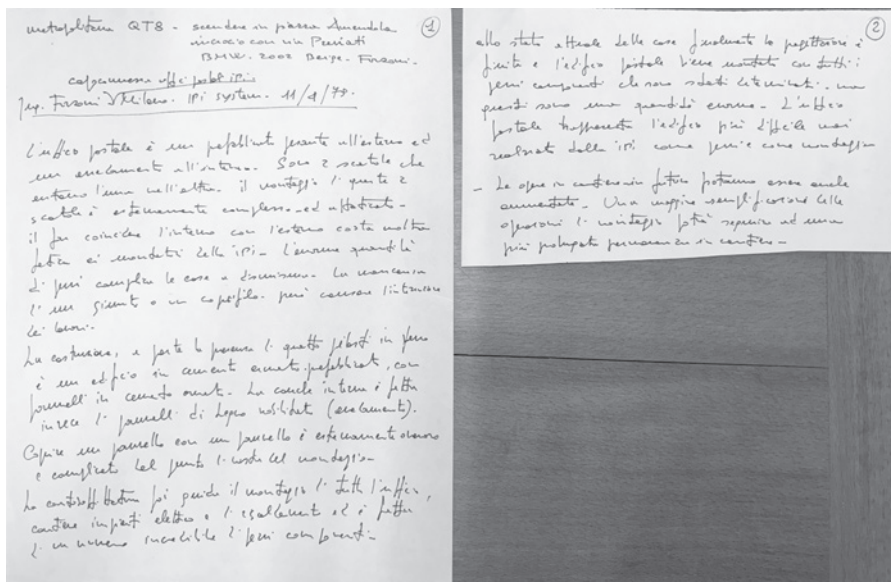 1
metropolitana QT8 - scendere in piazza Amendola
incrocio con via
BMW. 2002 Beige. Forsoni.
uffici postali IPI
Ing. Forsoni Milano. IPI System. 11/4/79.
L'ufficio postale è un prefabbricato pesante all'esterno ed
un arredamento all'interno. Sono 2 scatole che
entrano l'una nell'altra. il montaggio di queste 2
scatole è estremamente complesso ed
il far coincidere l'interno con l'esterno costa molta
fatica ai montatori della IPI. L'enorme quantità
di pezzi complica le cose a dismisura. La mancanza
di un giunto o un coprifilo può causare
dei lavori.
La costruzione, a parte la presenza di quattro pilastri in ferro
è un edificio in cemento armato prefabbricato, con
pannelli in cemento armato. La
invece di pannelli di legno nobilitato (arredamento).
Coprire un pannello con un pannello è estremamente oneroso
e complicato dal punto di vista del montaggio.
La controsoffittatura poi guida il montaggio di tutto l'ufficio,
contiene impianti elettrici e di ed è fatta
di un numero incredibile di pezzi componenti.
2
allo stato attuale delle cose finalmente la progettazione è
finita e l'edificio postale viene montato con tutti i
pezzi componenti che sono stati determinati. ma
questi sono una quantità enorme. L'ufficio
postale rappresenta l'edificio più difficile mai
realizzato dalla IPI come pezzi e come montaggio
- Le opere in cantiere in futuro potranno essere anche
aumentate. Una maggiore semplificazione delle
operazioni di montaggio potrà seguire ad una
più prolungata permanenza in cantiere.